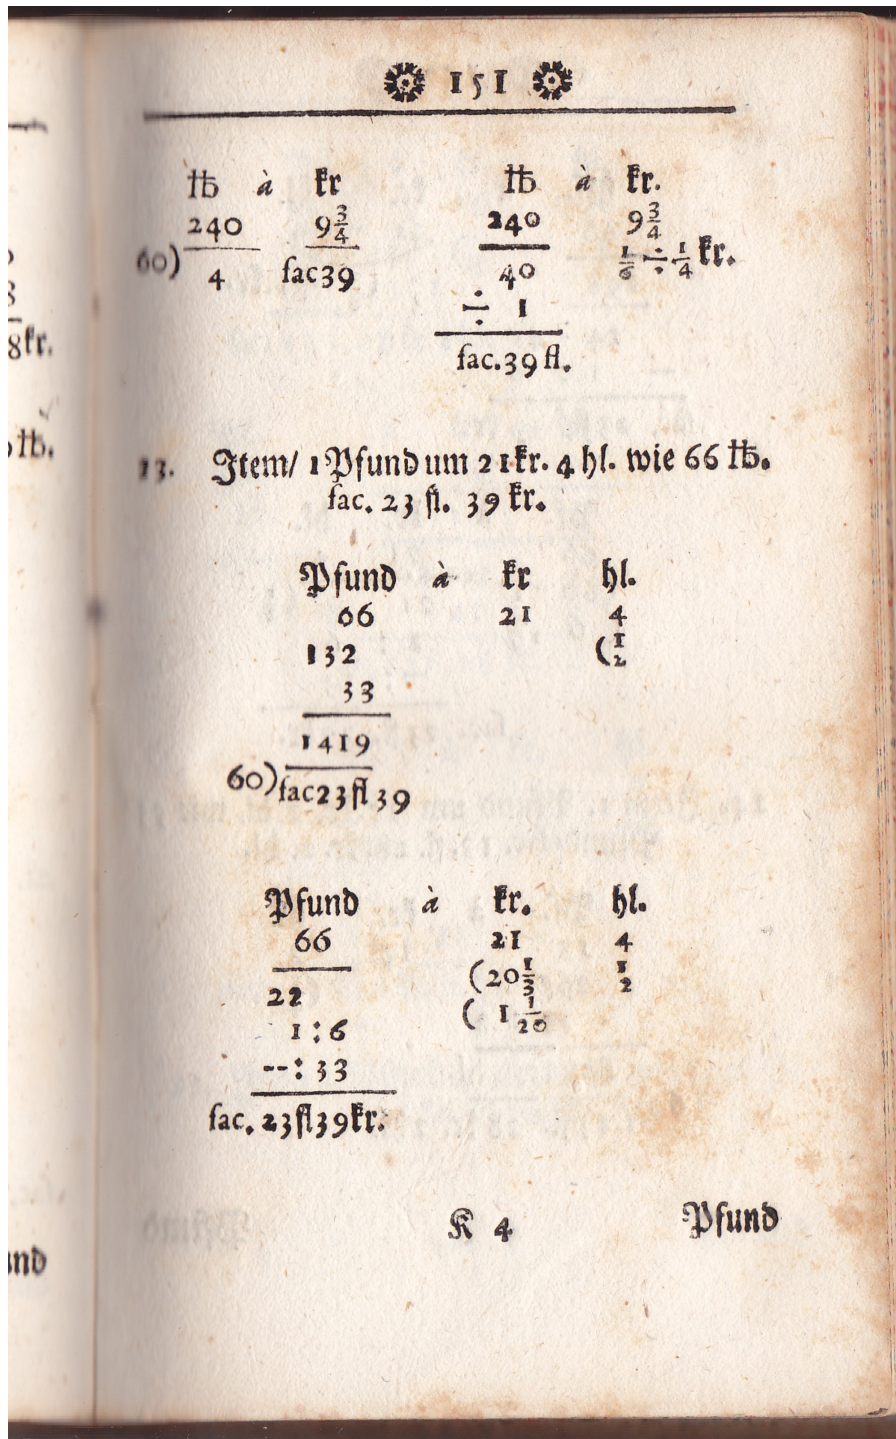 151
℔ à kr ℔ à kr.
240 9 3/4 240 9 3/4
60) 4 fac 39 40 1/6 ÷ 1/4 kr.
÷ 1
fac. 39 fl.
13. Item/ 1 Pfund um 21 kr. 4 hl. wie 66 ℔.
fac. 23 fl. 39 kr.
Pfund à kr hl.
66 21 4
132 (1/2
33
1419
60) fac 23 fl 39
Pfund à kr. hl.
66 21 4
22 (20 1/3 1/2
1 : 6 ( 1 1/20
--: 33
fac. 23 fl 39 kr.
K 4 Pfund
8 kr.
℔.